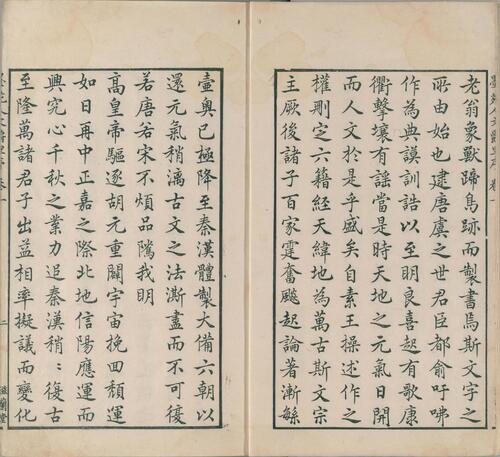 老翁象獸蹄鳥跡而製書焉斯文字之
所由始也逮唐虞之世君臣都俞吁咈
作為典謨訓誥以至明良喜起有歌康
衢擊壤有謠當是時天地之元氣日開
而人文於是乎盛矣自素王操述作之
權刪定六籍經天緯地為萬古斯文宗
主厥後諸子百家霆奮飈起論著漸繇
壼奥已極降至秦漢體製大備六朝以
還元氣稍漓古文之法澌盡而不可復
若唐若宋不煩品隲我明
高皇帝驅逐胡元重闢宇宙挽回頹運
如日再中正嘉之際北地信陽應運而
興究心千秋之業力追秦漢稍〻復古
至隆萬諸君子出益相率擬議而變化
二
滋蘭堂